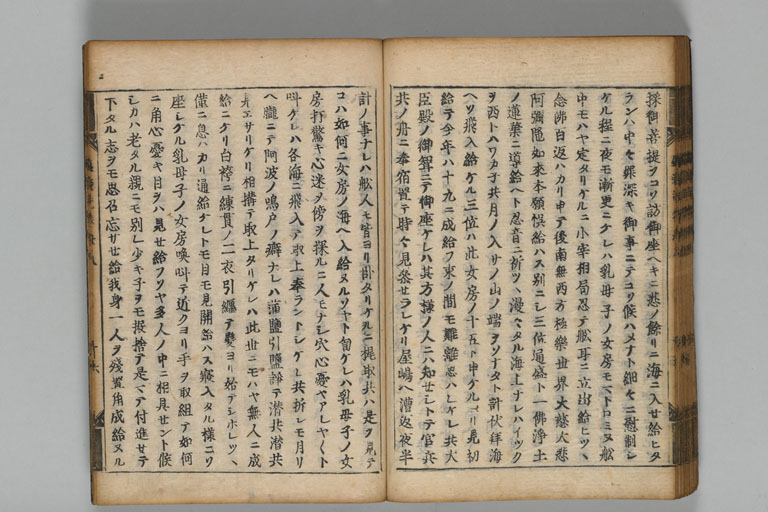 探御菩提ヲコソ訪御座ヘキニ悲ノ餘リニ海ニ入せ給ヒタ
ランハ中々罪深キ御事ニテコソ候ハメナト細々ニ慰制シ
ケル程ニ夜モ漸更ニケレハ乳母子ノ女房モマトロミヌ舩
中モハヤ定タリケルニ小宰相局忍テ舩耳ニ立出給ヒツヽ
念佛百返ハカリ申テ後南無西方極樂世界大慈大悲
阿弥陀如来本願悞給ハス別ニシ三位通盛ト一佛浄土
ノ蓮葉ニ導給ヘト忍音ニ祈ツヽ漫々タル海上ナレハイツク
ヲ西トハワカ子共月ノ入サノ山ノ端ヲソナタト計伏拜海
ヘソ飛入給ケル三位ハ此女房ノ十五ト申ケルヨリ見初
給テ今年ハ十九ニ成給フ束ノ間モ難離思ハレケレ共大
臣殿ノ御聟ニテ御座ケレハ其方樣ノ人ニハ知せシトテ官兵
共ノ舟ニ奉宿置テ時々見參せラレケリ屋嶋ヘ漕返夜半
計ノ事ナレハ舩人モ皆ヨリ卧タリケルニ梶取共ハ是ヲ見テ
コハ如何ニ女房ノ海ヘ入給ヌルソヤト訇ケレハ乳母子ノ女
房打驚キ心迷ヲ傍ヲ探ルニ人モナシ穴心憂ヤアレヤ〱ト
叫ケレハ各海ニ飛入テ取上奉ラントシケレ共折シモ月サ
ヘ朧ニテ阿波ノ鳴戸ノ癖ナレハ蒲鹽引鹽諍テ潜共潜共
見エサリケリ相搆テ取上タリケレハ此世ニモハヤ無人ニ成
給ニケリ白袴ニ練貫ノ二衣引纒テ鬢ヨリ始テシホレツヽ
僅ニ息ハカリ通給ケレトモ目モ見開給ハス寢入タル樣ニソ
座シケル乳母子ノ女房喚叫テ近クヨリ手ヲ取組テ如何
ニ角心憂キ目ヲハ見せ給フソヤ多人ノ中ニ相具せント候
シカハ老タル親ニモ別レ少キ子ヲモ振捨テ是マテ付進せテ
下タル志ヲモ思召忘サせ給我身一人ヲ殘置角成給ヌル